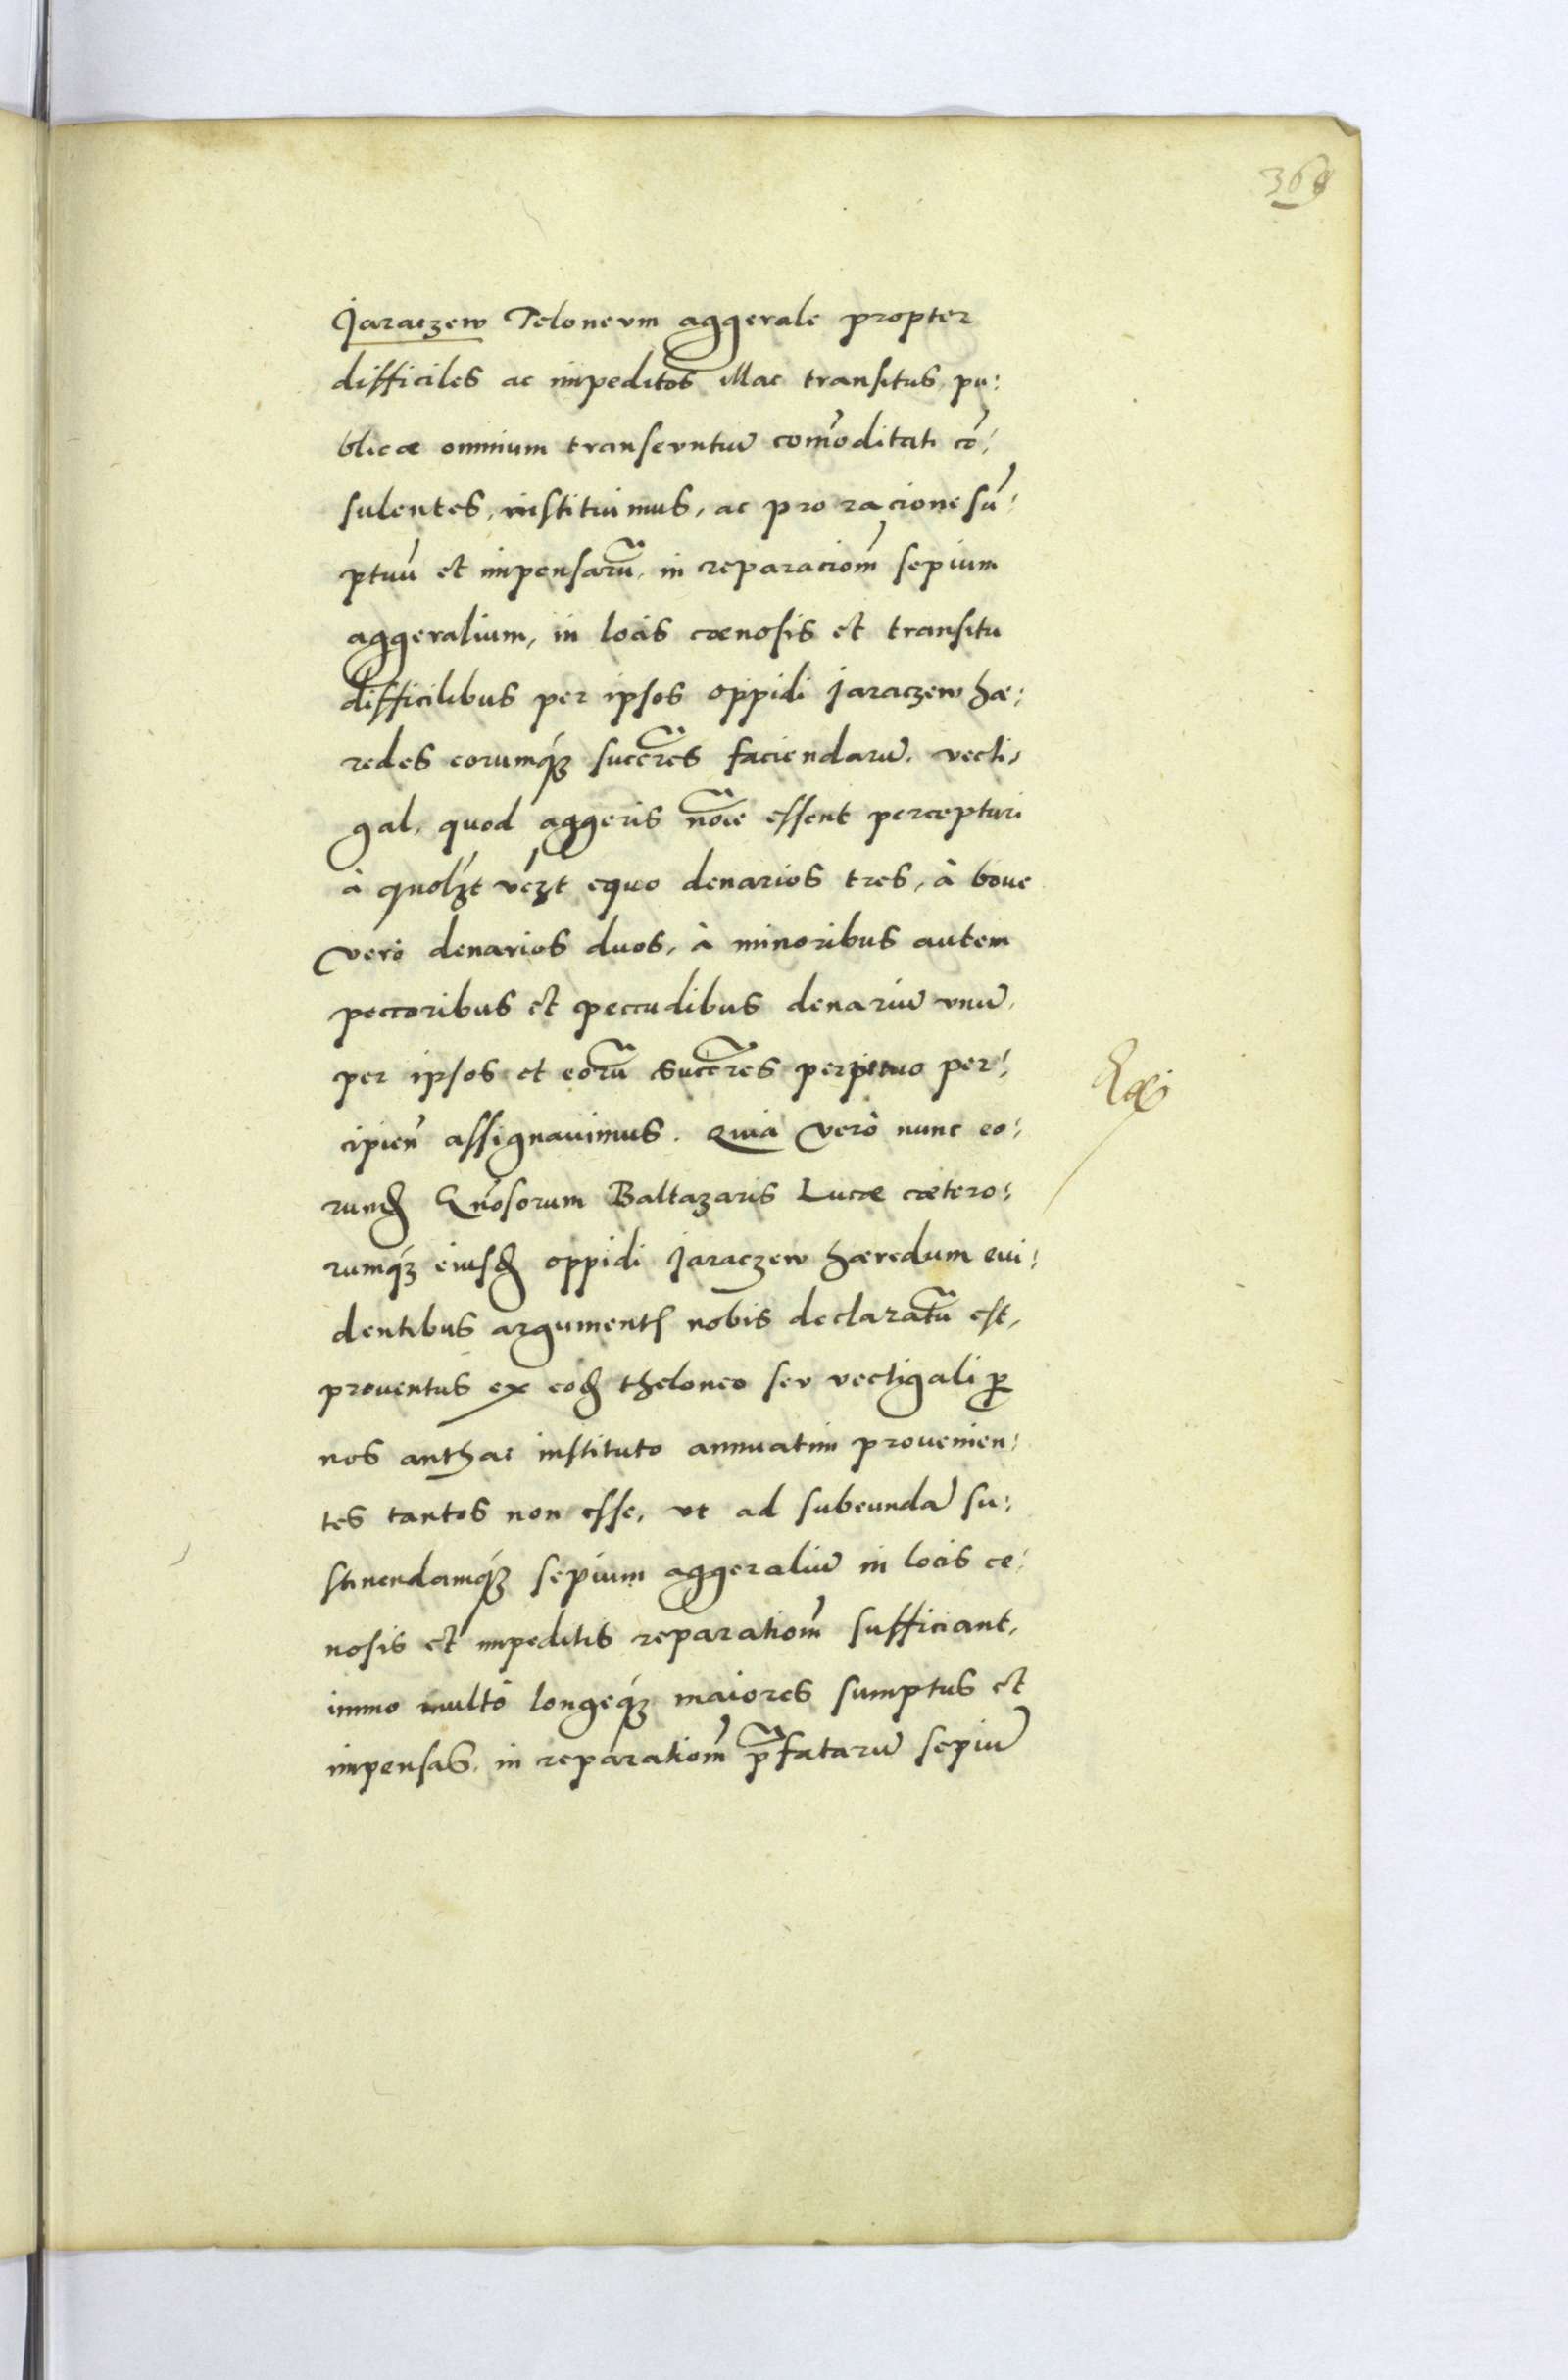 369
Jaraczew Teloneum aggerale propter
difficiles ac impeditos illac transitus pu:
blicæ omnium transeuntiū com̄oditati cō:
sulentes, instituimus, ac pro racione sū:
ptuū et impensarū, in reparacionē sepium
aggeralium, in locis cœnosis et transitu
difficilibus per ipsos oppidi Jaraczew hæ:
redes eorumq́ʒ succres̄ faciendarū, vecti:
gal, quod aggeris nōie essent percepturi
à quolʒt vēzt equo denarios tres, à boue
verò denarios duos, à minoribus autem
peccoribus et peccudibus denariū vnū,
per ipsos et eorū succres̄ perpetuo per:
cipien̄ assignauimus. Quia verò nunc eo:
rund̄ Gn̄osorum Baltazaris Lucæ cætero:
rumq́ʒ eiusd̄ oppidi Jaraczew hæredum eui:
dentibus argumentꝭ nobis declaratū est,
prouentus ex eod̄ theloneo seu vectigali ꝑ
nos anthac instituto annuatim prouenien:
tes tantos non esse, vt ad subeundā su:
stinendamq́ʒ sepium aggeraliū in locis ce:
nosis et impeditis reparationē sufficiant,
immo multò longeq́ʒ maiores sumptus et
impensas, in reparationē p̄fatarū sepiū